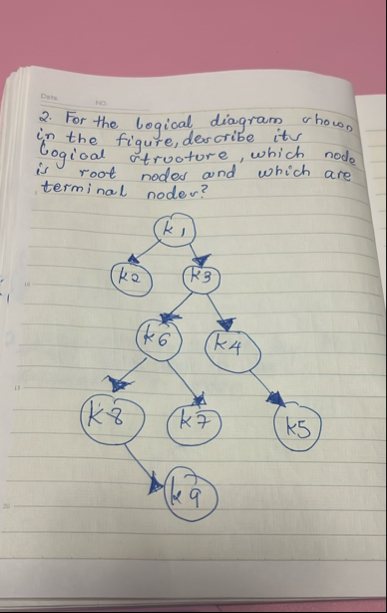 Date NO.
2. For the logical diagram shown
in the figure, describe its
logical structure, which node
is root nodes and which are
terminal nodes?
k1
k2 k3
k6 k4
k8 k7 k5
k9